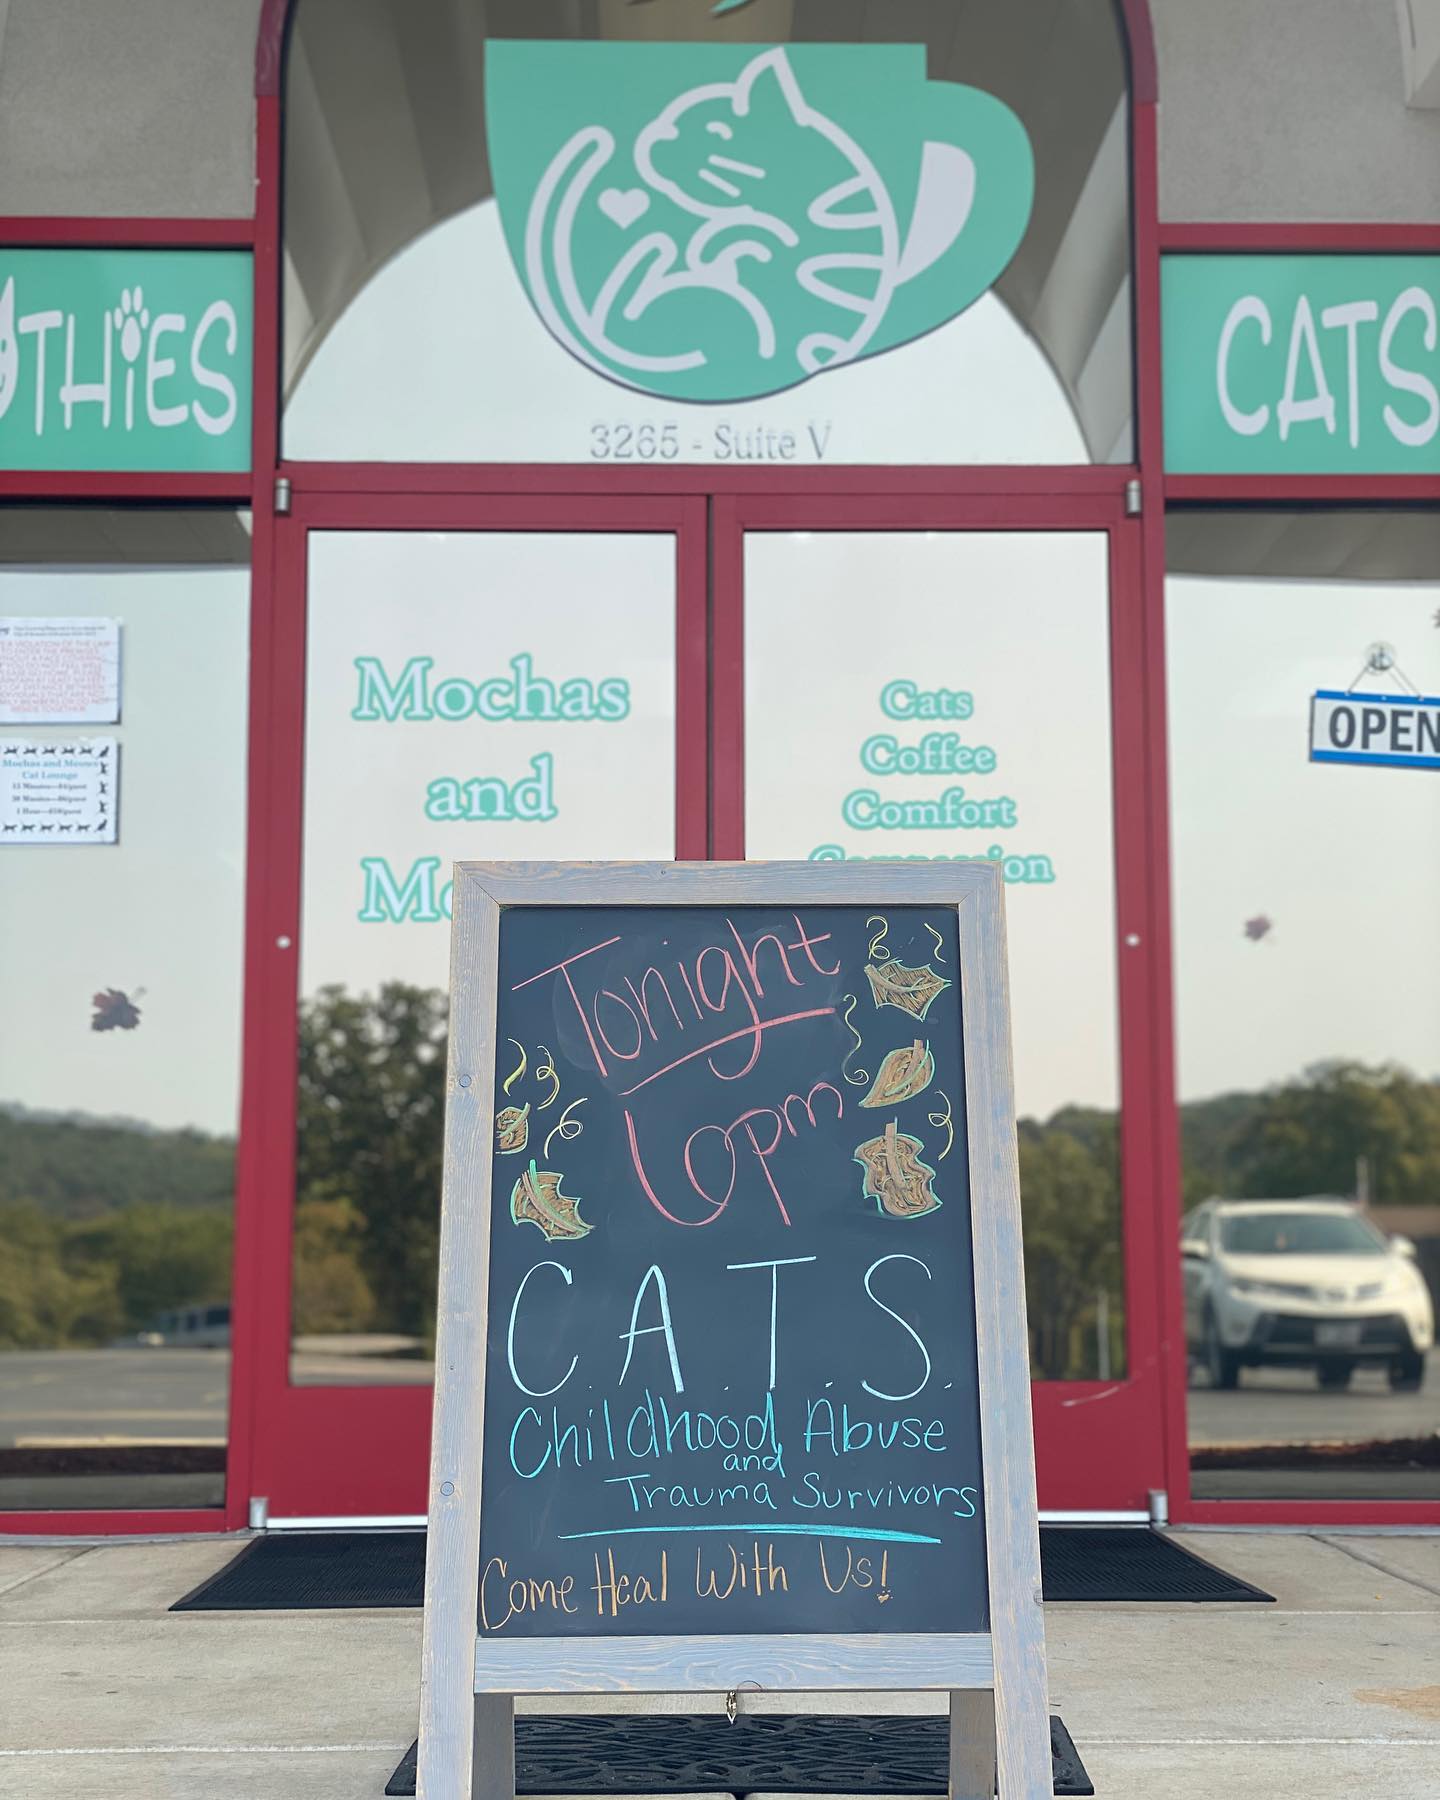 THIES
CATS
3265 - Suite V
Mochas
and
Cats
Coffee
Comfort
OPEN
Mochas and Meows
Cat Lounge
Tonight
6pm
C.A.T.S.
Childhood Abuse
and
Trauma Survivors
Come Heal With Us!